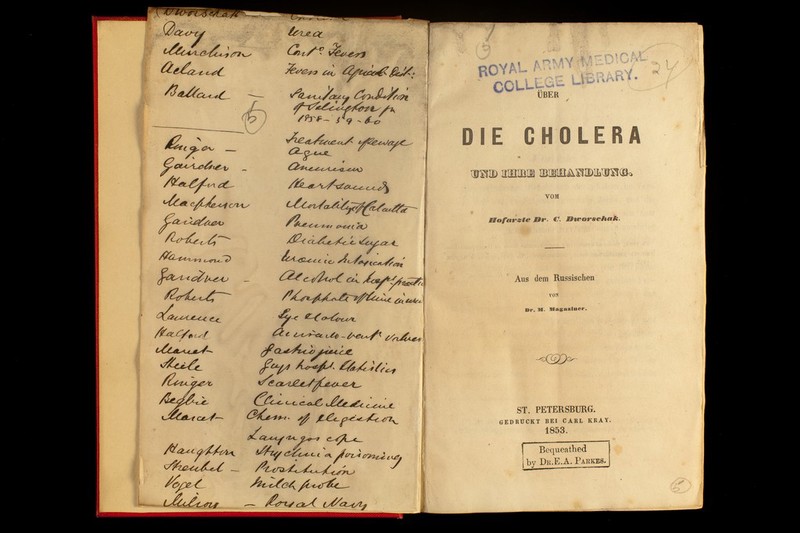 Davy Urea
Murchison Cont.d Fevers
Acland Fevers in Agricult. Dist.:
Ballard — Sanitary Condition
of Islington for
1858-59-60
5
Ringer — Treatment of Sewage
Ague
Gairdner - Aneurism
Halford Heart sounds
Macpherson Mortality of Calcutta
Gairdner Pneumonia
Roberts Diabetic Sugar
Hammond Uraemic Intoxication
Gairdner - Alcohol in hospl. practice
Roberts Phosphate of Lime in urine
Laurence Eye & Colour
Halford Auriculo-ventr valves
Marcet Gastric juice
Steele Guys hospl. Statistics
Ringer Scarlet fever
Begbie Clinical Medicine
Marcet Chem. of Digestion
Laryngoscope
Haughton Strychnia poisoning
Strohbel — Prostitution
Vogel Milch probe
Milroy — Royal Navy
ROYAL ARMY MEDICAL
COLLEGE LIBRARY.
24
ÜBER
DIE CHOLERA
UND IHRE BEHANDLUNG.
VOM
Hofarzte Dr. C. Dworschak.
Aus dem Russischen
von
Dr. M. Magaziner.
ST. PETERSBURG.
GEDRUCKT BEI CARL KRAY.
1853.
Bequeathed
by Dr. E. A. Parkes.